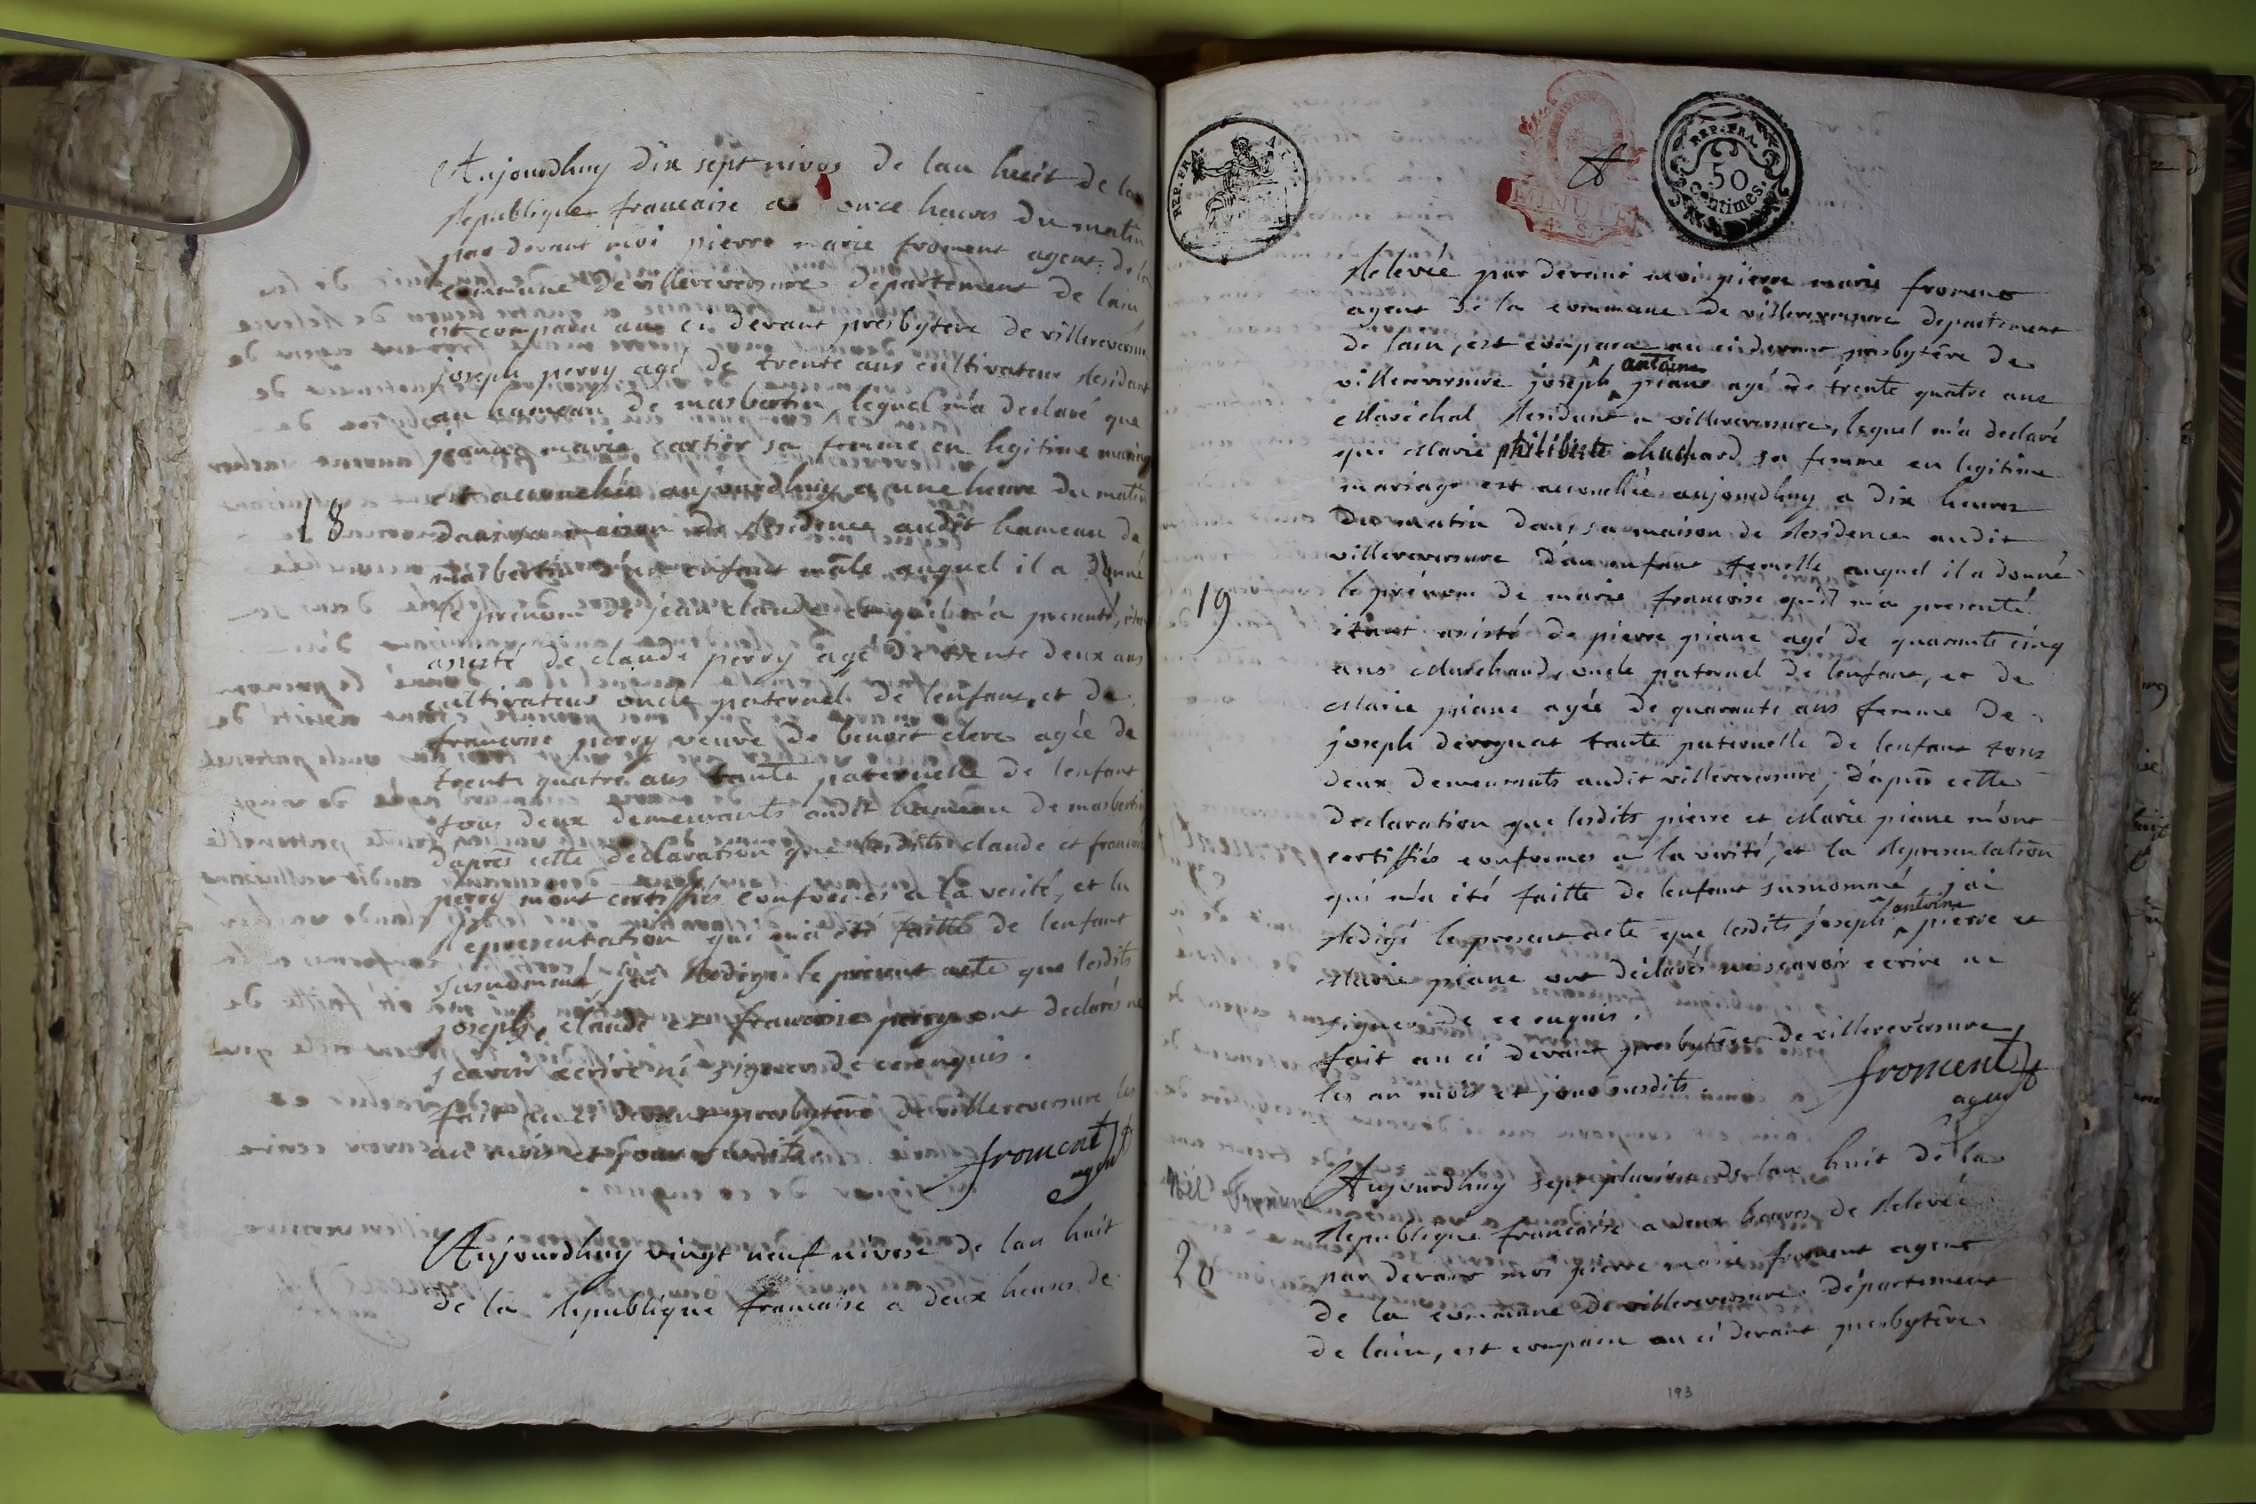 Aujourdhuy dix sept nivos de lan huit de la
Republique francaise a onze heures du matin
par devant moi pierre marie froment agent de la
commune de villereversure departement de lain
est comparu au ci devant presbytere de villereversure
joseph perry agé de trente ans cultivateur Residant
au hameau de masbertin, lequel m'a declaré que
jeanne marie cartier sa femme en legitime mariage
est accouchée aujourdhuy a une heure du matin
dans sa maison de Residence audit hameau de
18
masbertin d'un enfant mâle auquel il a donné
le prenom de jean claude et qu'il m'a presenté, étant
assisté de claude perry agé de trente deux ans
cultivateur oncle paternel de lenfant, et de
francoise perry veuve de benoit clerc agée de
trente quatre ans tante paternelle de lenfant
tous deux demeurants audit hameau de masbertin
d'aprés cette déclaration que lesdits claude et francoise
perry mont certiffiés conformes a la verité, et la
Representation qui m'a été faitte de lenfant
susnommé, jai Redigé le présent acte que lesdits
joseph, claude et francoise perry ont declarés ne
scavoir écrire ni signer de ce enquis.
fait au ci devant presbytére de villereversure les
an mois et jour susdits.
froment
agent
Aujourdhuy vingt neuf nivose de lan huit
de la Republique francaise a deux heures de
REP. FRA.
MINUTE
4 S.
REP. FRA.
50
Centimes.
Relevée par devant moi pierre marie froment
agent de la commune de villereversure departement
de lain, est comparu au ci devant presbytêre de
antoine
villereversure joseph piane agé de trente quatre ans
Maréchal Residant a villereversure, lequel m'a declaré
que Marie philiberte chuchard sa femme en legitime
mariage est accouchée aujourdhuy a dix heures
du matin dans sa maison de Residence audit
villereversure d'un enfant femelle auquel il a donné
19
le prénom de marie francoise qu'il m'a presenté
étant assisté de pierre piane agé de quarante cinq
ans Marchand, oncle paternel de lenfant, et de
Marie piane agée de quarante ans femme de
joseph deroguat tante paternelle de lenfant tous
deux demeurants audit villereversure, d'aprés cette
declaration que lesdits pierre et Marie piane m'ont
certiffiés conformes a la verité, et la Representation
qui m'a été faitte de lenfant susnommé jai
antoine
Redigé le present acte que lesdits joseph pierre et
Marie piane ont déclarés ne scavoir ecrire ne
signer de ce enquis.
fait au ci devant presbytêre de villereversure
les an mois et jour susdits.
froment
agent
Aujourdhuy sept pluviose de lan huit de la
Republique francaise a deux heures de Relevée
20
par devant moi pierre marie froment agent
de la commune de villereversure département
de lain, est comparu au ci devant presbytêre
193